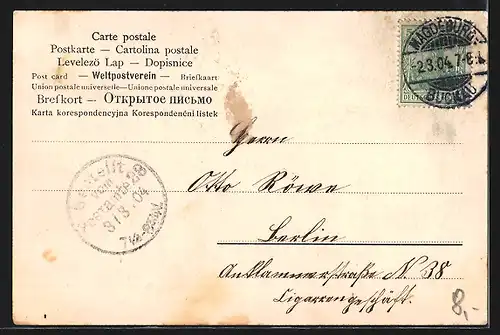 Carte postale
Postkarte — Cartolina postale
Levelező Lap — Dopisnice
Post card — Weltpostverein — Briefkaart
Union postale universelle — Unione postale universale
Brefkort — Открытое письмо
Karta korespondencyjna Korespondenční lístek
MAGDEBURG-
2.3.04 7-8
BUCKAU
Bestellt
vom
Postamte 28
3/3 04
7¼
Herrn
Otto Röwe
Berlin
Anklammerstraße N. 38
Cigarrengeschäft.
8,-